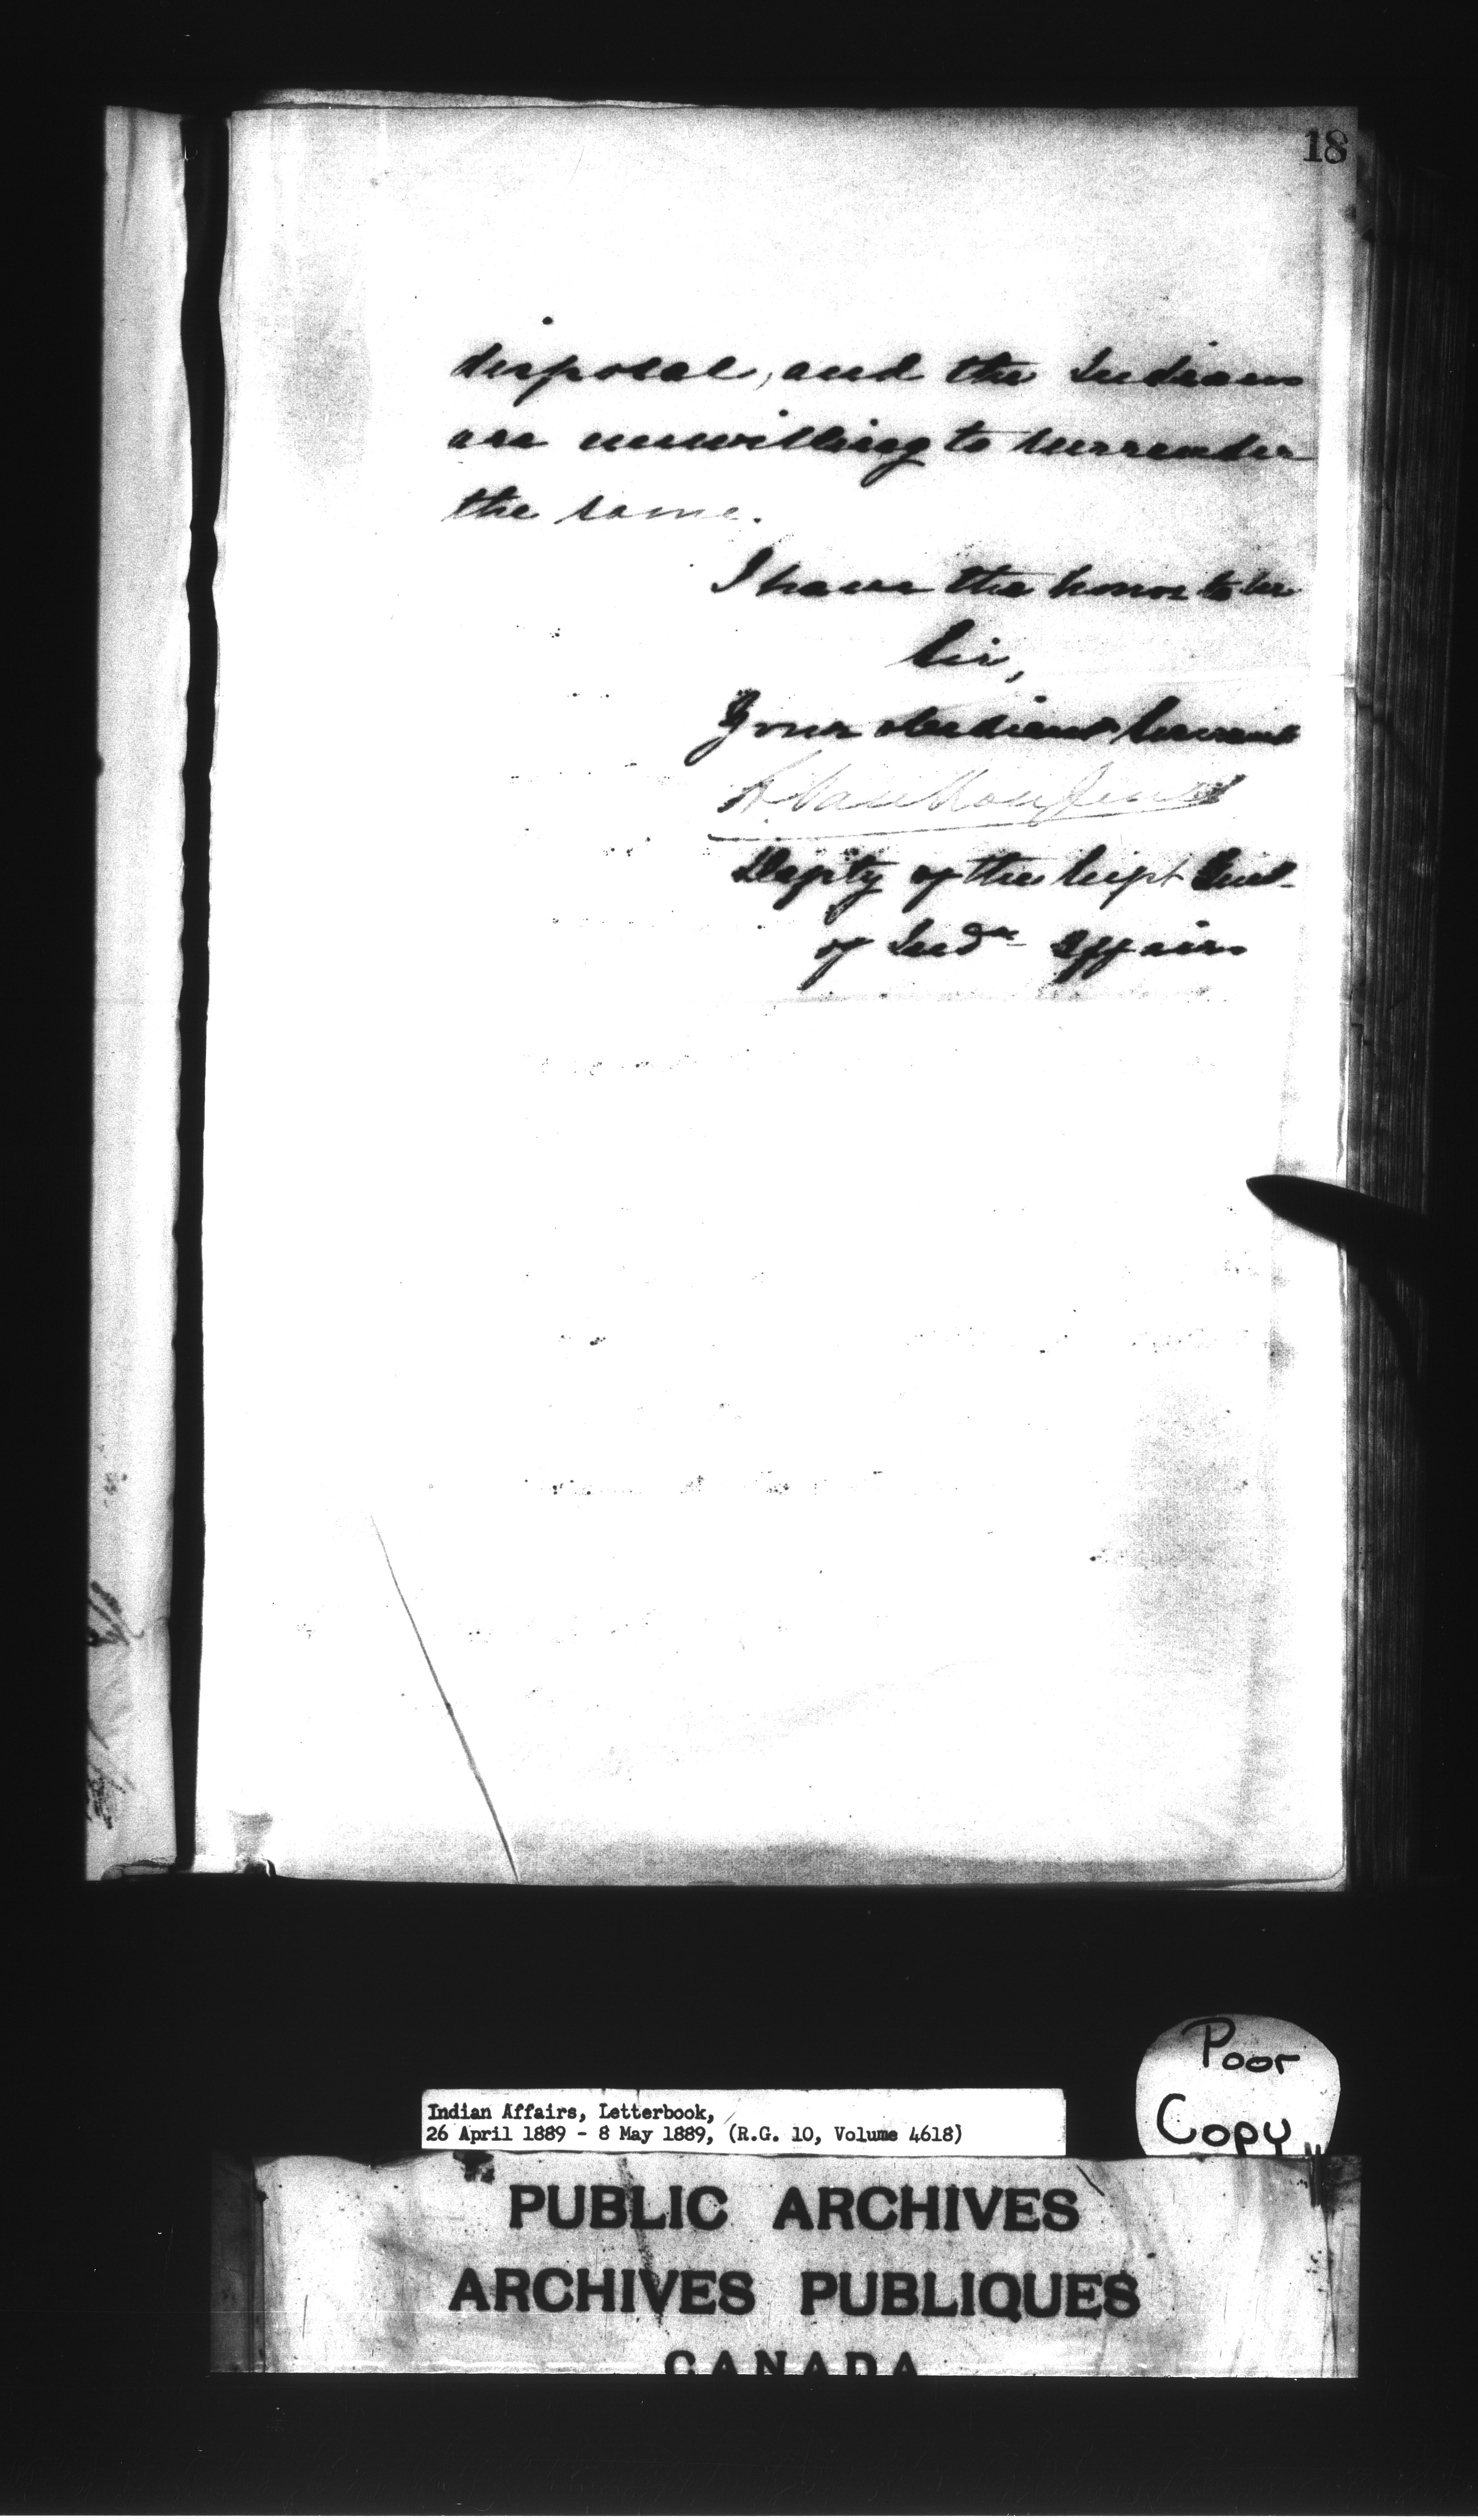 18
disposal, and the Indians
are unwilling to surrender
the same.
I have the honor to be
Sir,
Your obedient Servant
L. VanKoughnet
Deputy of the Supt Genl
of Indn Affairs
Poor
Copy
Indian Affairs, Letterbook,
26 April 1889 - 8 May 1889, (R.G. 10, Volume 4618)
PUBLIC ARCHIVES
ARCHIVES PUBLIQUES
CANADA